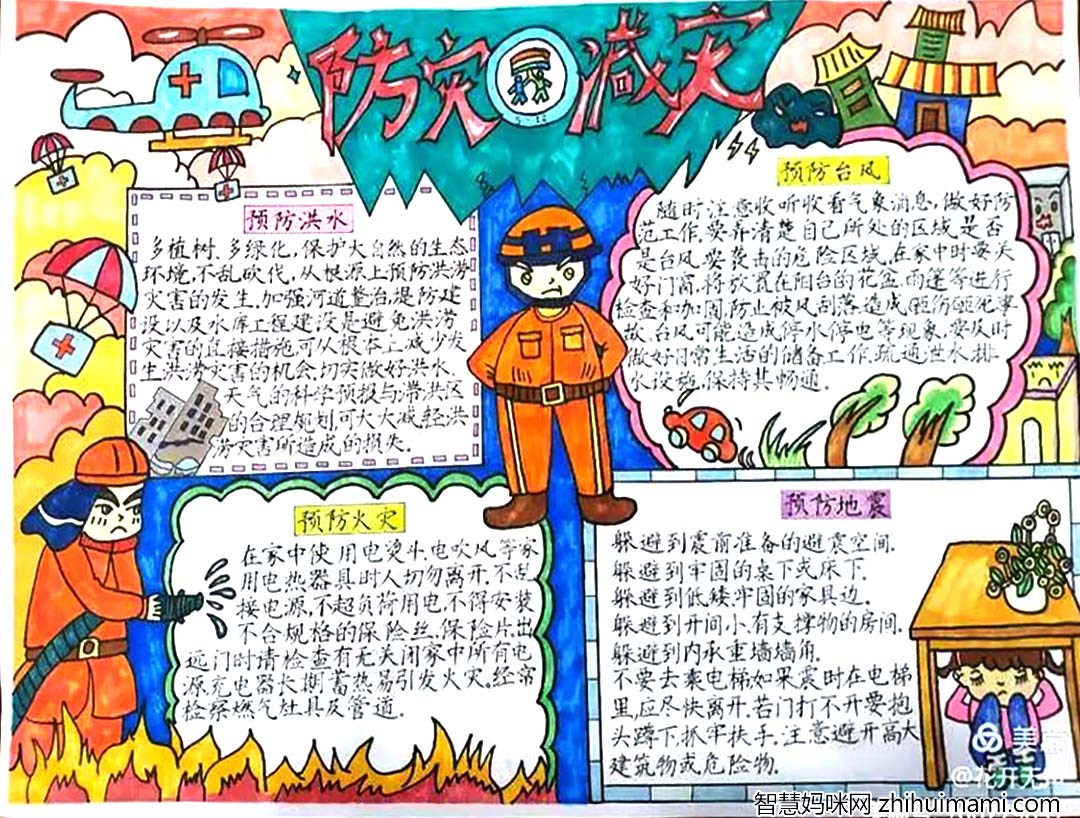 防灾减灾
5·12
预防洪水
多植树、多绿化,保护大自然的生态
环境,不乱砍伐,从根源上预防洪涝
灾害的发生,加强河道整治、堤防建
设以及水库工程建设是避免洪涝
灾害的直接措施可从根本上减少发
生洪涝灾害的机会切实做好洪水、
天气的科学预报与滞洪区
的合理规划可大大减轻洪
涝灾害所造成的损失.
预防台风
随时注意收听收看气象消息,做好防
范工作.要弄清楚自己所处的区域是否
是台风要袭击的危险区域.在家中时要关
好门窗,将放置在阳台的花盆,雨篷等进行
检查和加固,防止被风刮落造成砸伤砸死事
故.台风可能造成停水停电等现象,要及时
做好日常生活的储备工作,疏通泄水排
水设施,保持其畅通.
预防火灾
在家中使用电熨斗、电吹风等家
用电热器具时人切勿离开,不乱
接电源,不超负荷用电,不得安装
不合规格的保险丝、保险片,出
远门时请检查有无关闭家中所有电
源充电器长期蓄热易引发火灾,经常
检察燃气灶具及管道.
预防地震
躲避到震前准备的避震空间.
躲避到牢固的桌下或床下.
躲避到低矮、牢固的家具边.
躲避到开间小、有支撑物的房间.
躲避到内承重墙墙角.
不要去乘电梯,如果震时在电梯
里,应尽快离开,若门打不开要抱
头蹲下,抓牢扶手.注意避开高大
建筑物或危险物.
美篇
@花开无声
智慧妈咪网 zhihuimami.com